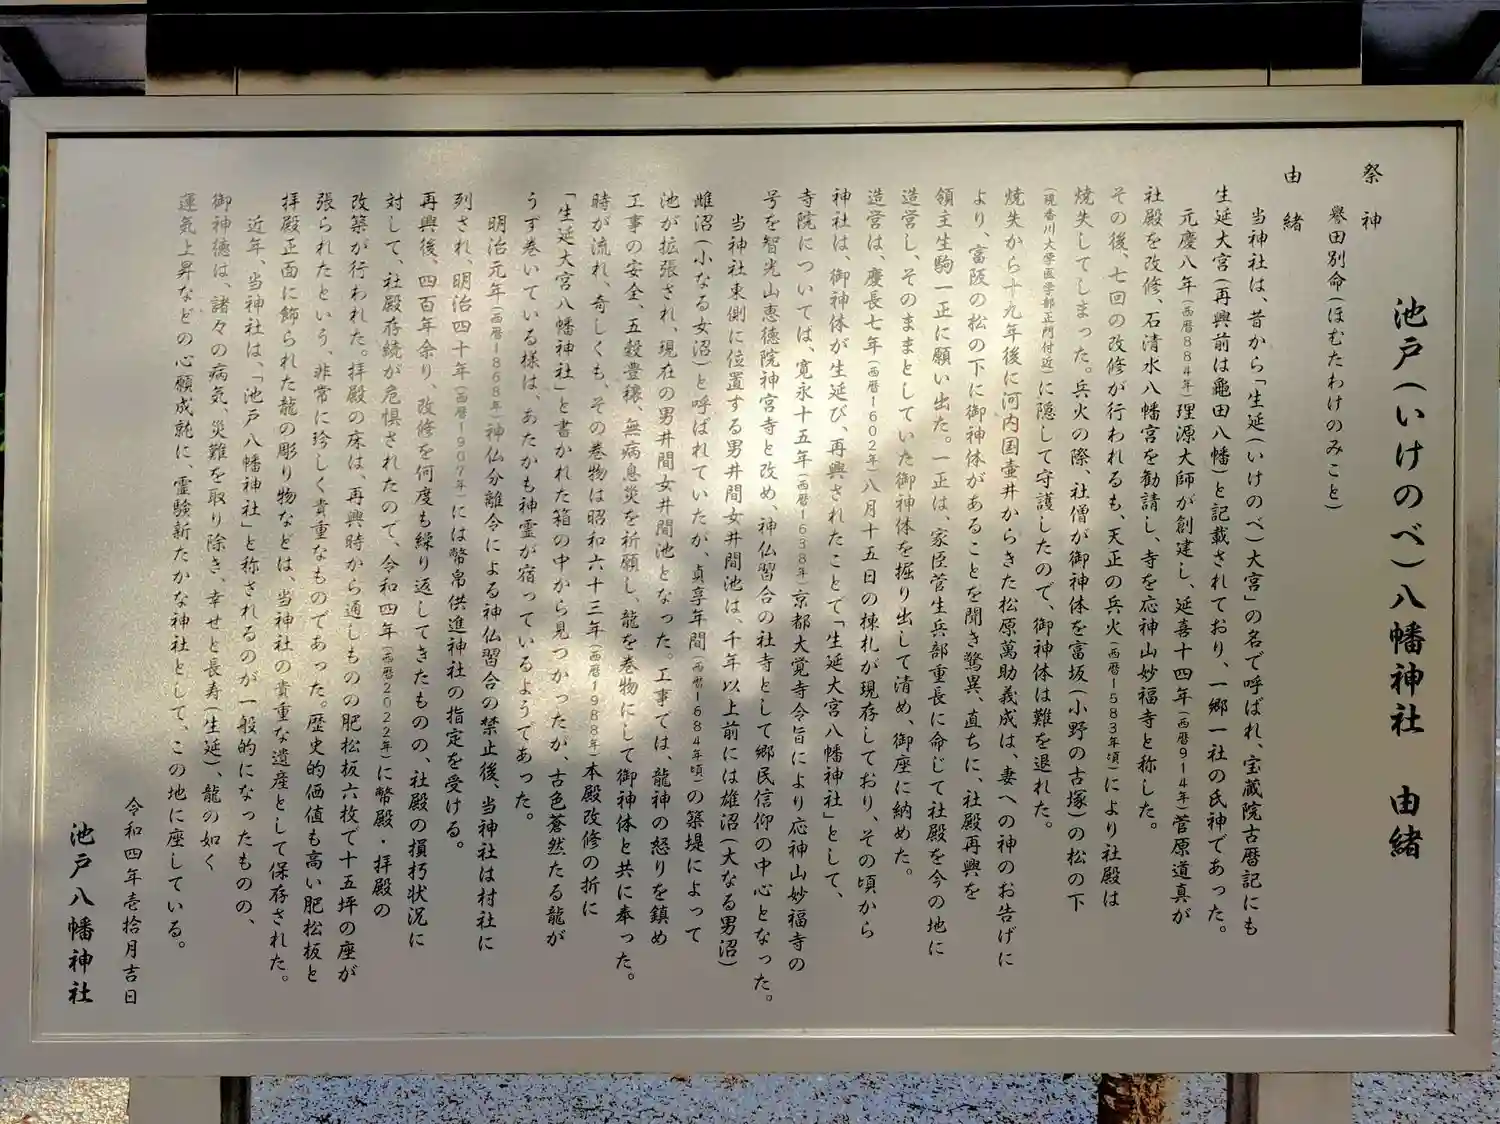 池戸(いけのべ)八幡神社　由緒
祭神
誉田別命(ほむたわけのみこと)
由緒
当神社は、昔から「生延(いけのべ)大宮」の名で呼ばれ、宝蔵院古暦記にも
生延大宮(再興前は亀田八幡)と記載されており、一郷一社の氏神であった。
元慶八年(西暦884年)理源大師が創建し、延喜十四年(西暦914年)菅原道真が
社殿を改修、石清水八幡宮を勧請し、寺を応神山妙福寺と称した。
その後、七回の改修が行われるも、天正の兵火(西暦1583年頃)により社殿は
焼失してしまった。兵火の際、社僧が御神体を富坂(小野の古塚)の松の下
(現香川大学医学部正門付近)に隠して守護したので、御神体は難を退れた。
焼失から十九年後に河内国壷井からきた松原萬助義成は、妻への神のお告げに
より、富阪の松の下に御神体があることを聞き驚異、直ちに、社殿再興を
領主生駒一正に願い出た。一正は、家臣菅生兵部重長に命じて社殿を今の地に
造営し、そのままとしていた御神体を掘り出して清め、御座に納めた。
造営は、慶長七年(西暦1602年)八月十五日の棟札が現存しており、その頃から
神社は、御神体が生延び、再興されたことで「生延大宮八幡神社」として、
寺院については、寛永十五年(西暦1638年)京都大覚寺令旨により応神山妙福寺の
号を智光山恵徳院神宮寺と改め、神仏習合の社寺として郷民信仰の中心となった。
当神社東側に位置する男井間女井間池は、千年以上前には雄沼(大なる男沼)
雌沼(小なる女沼)と呼ばれていたが、貞享年間(西暦1684年頃)の築堤によって
池が拡張され、現在の男井間女井間池となった。工事では、龍神の怒りを鎮め
工事の安全、五穀豊穣、無病息災を祈願し、龍を巻物にして御神体と共に奉った。
時が流れ、奇しくも、その巻物は昭和六十三年(西暦1988年)本殿改修の折に
「生延大宮八幡神社」と書かれた箱の中から見つかったが、古色蒼然たる龍が
うず巻いている様は、あたかも神霊が宿っているようであった。
明治元年(西暦1868年)神仏分離令による神仏習合の禁止後、当神社は村社に
列され、明治四十年(西暦1907年)には幣帛供進神社の指定を受ける。
再興後、四百年余り、改修を何度も繰り返してきたものの、社殿の損朽状況に
対して、社殿存続が危惧されたので、令和四年(西暦2022年)に幣殿・拝殿の
改築が行われた。拝殿の床は、再興時から通しものの肥松板六枚で十五坪の座が
張られたという、非常に珍しく貴重なものであった。歴史的価値も高い肥松板と
拝殿正面に飾られた龍の彫り物などは、当神社の貴重な遺産として保存された。
近年、当神社は、「池戸八幡神社」と称されるのが一般的になったものの、
御神徳は、諸々の病気、災難を取り除き、幸せと長寿(生延)、龍の如く
運気上昇などの心願成就に、霊験新たかな神社として、この地に座している。
令和四年壱拾月吉日
池戸八幡神社